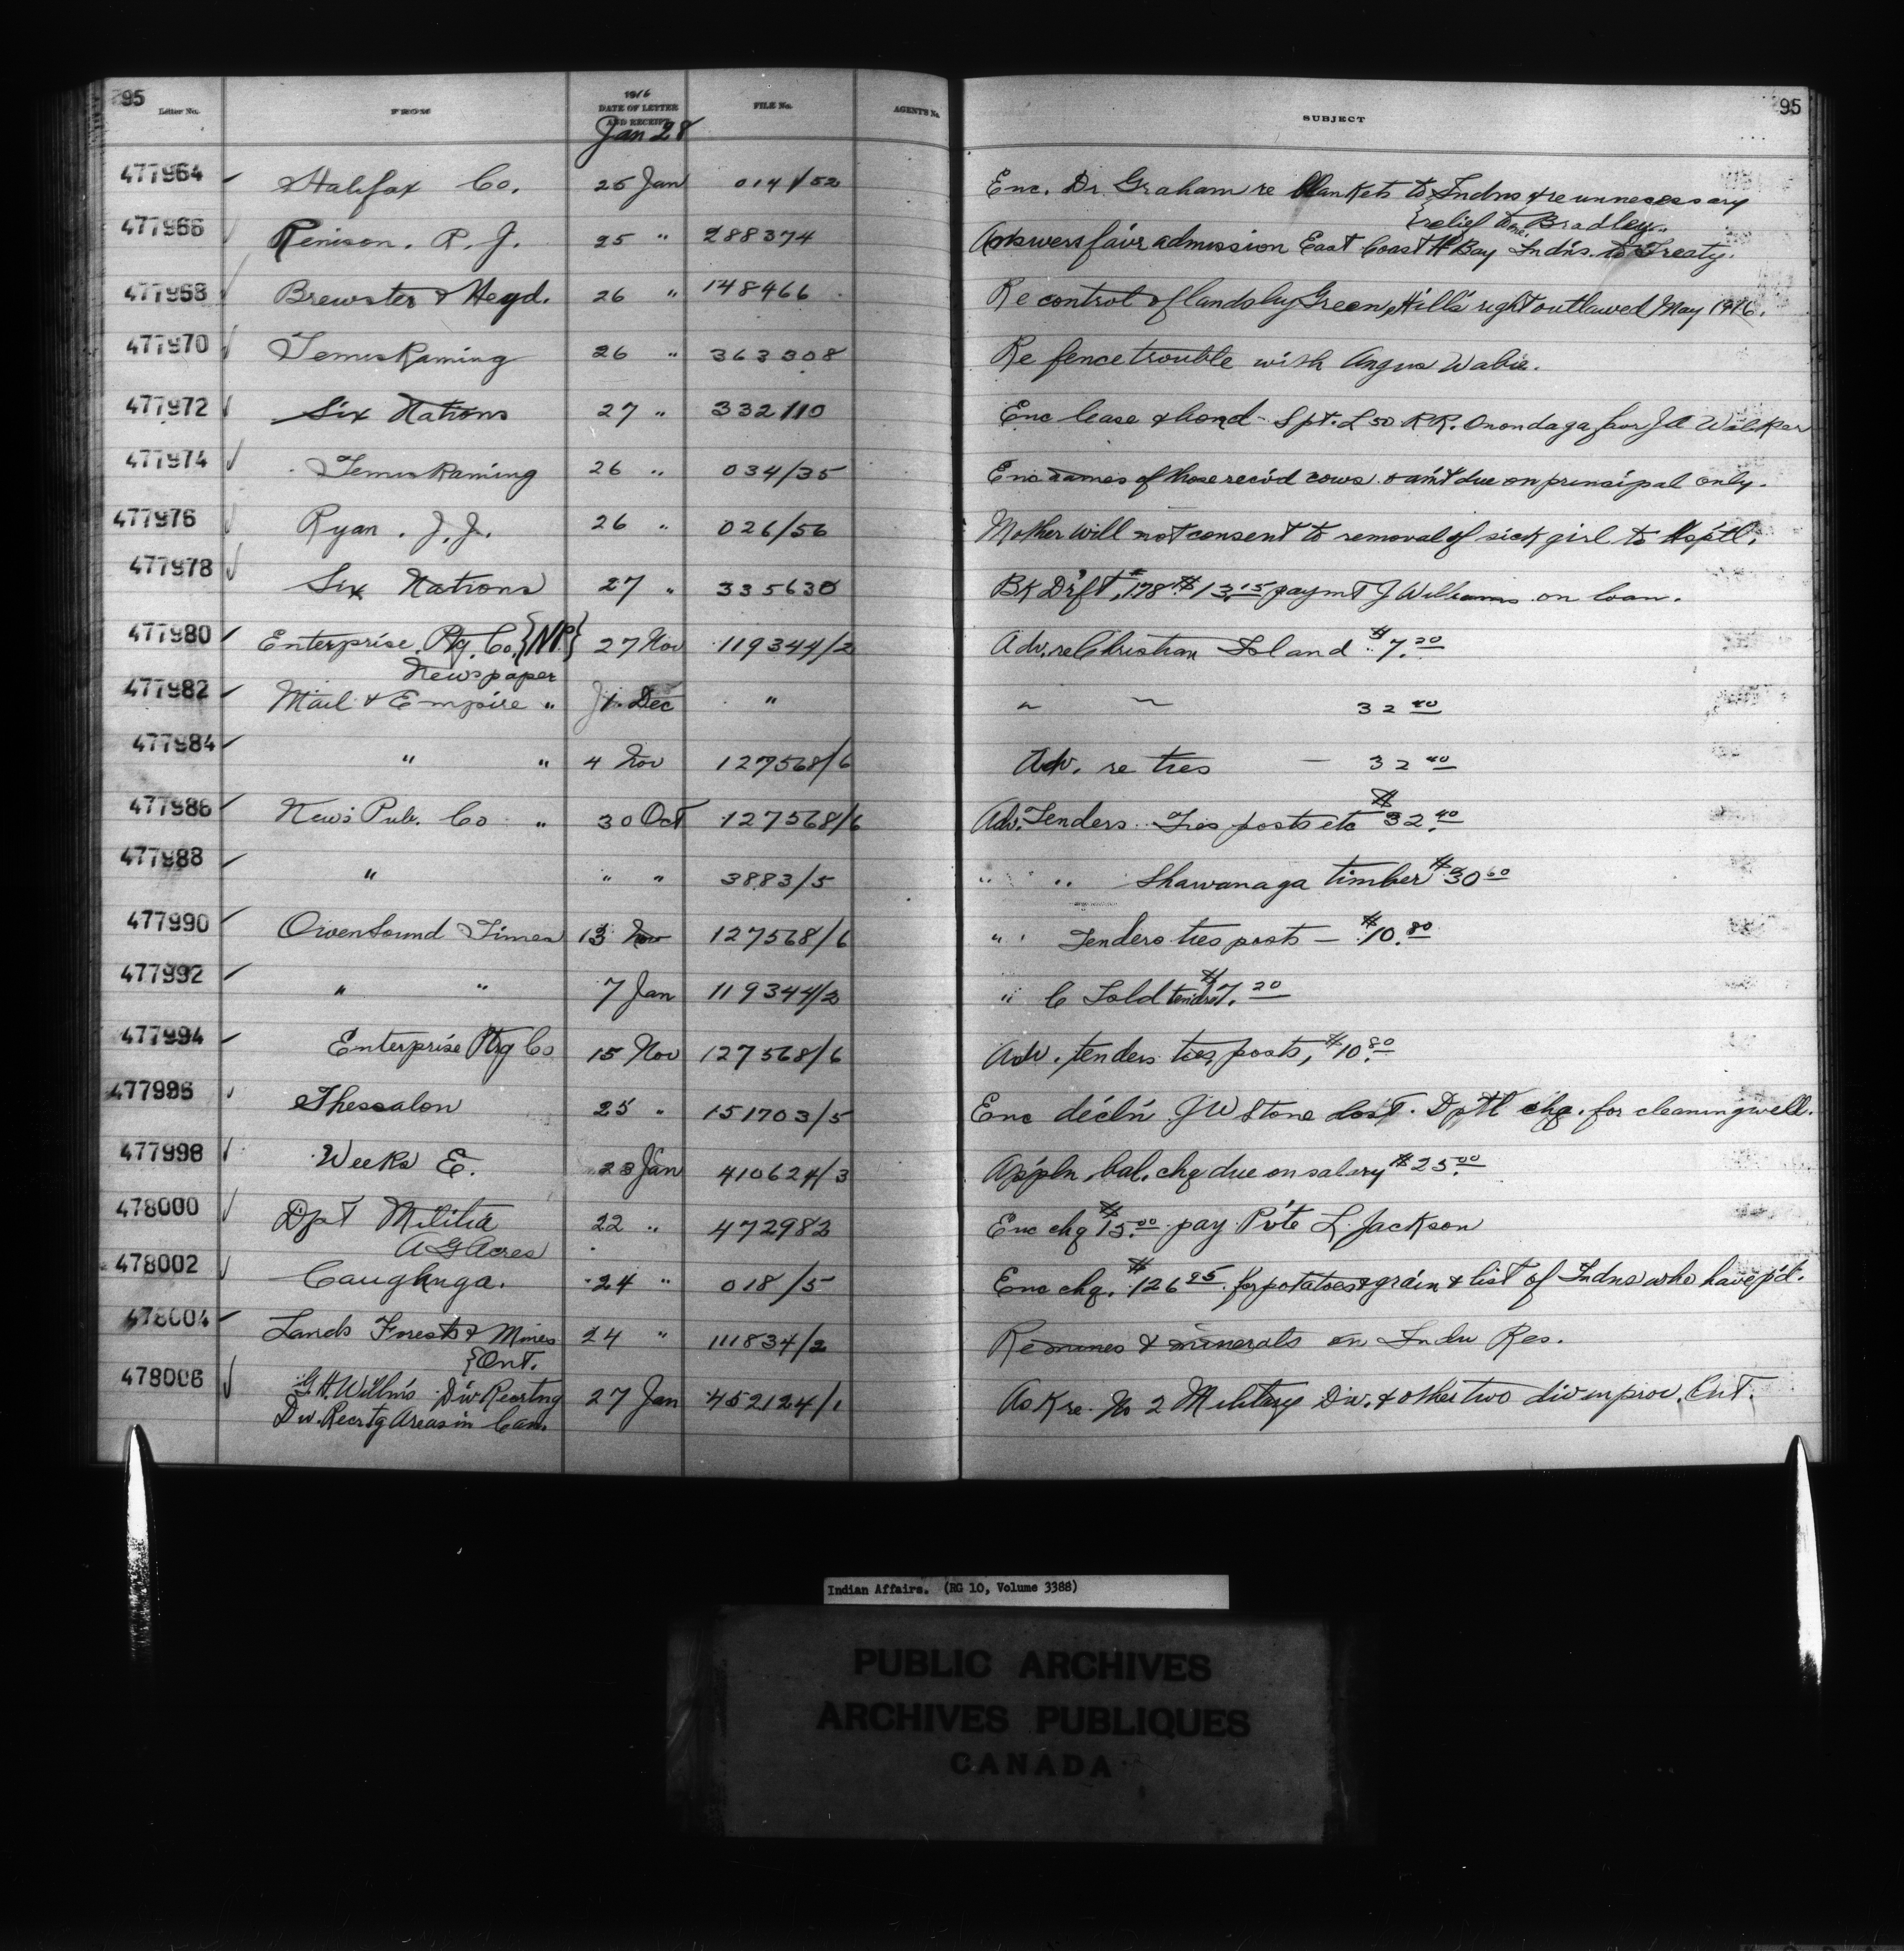 95 95
Letter No. FROM 1916 DATE OF LETTER AND RECEIPT FILE No. AGENTS No. SUBJECT
Jan 28
477964 Halifax Co. 25 Jan 014/52 Enc. Dr Graham re blankets to Indns & re unnecessary
{relief to Bradley
477966 Renison. R. J. 25 " 288374 Answers favr admission East Coast H Bay Indns. to Treaty.
477968 Brewster & Heyd. 26 " 148466 Re control of lands by Green, Hill's right outlawed May 1916.
477970 Temiskaming 26 " 363308 Re fence trouble with Angus Wabie.
477972 Six Nations 27 " 332110 Enc lease & bond Spt. L 50 R R. Onondaga favr J A Walker
477974 Temiskaming 26 " 034/35 Enc names of those rec'd cows & am't due on principal only.
477976 Ryan. J. J. 26 " 026/56 Mother will not consent to removal of sick girl to Hsptl.
477978 Six Nations 27 " 335630 Bk Drft, 178 $13.15 paymt J Williams on loan.
477980 Enterprise Ptg. Co. {NP} 27 Nov 119344/2 Adv. re Christian Island $7.20
Newspaper
477982 Mail & Empire " 1 Dec " " " 32 40
477984 " " 4 Nov 127568/6 Adv. re ties — 32 40
477986 News Pub. Co " 30 Oct 127568/6 Adv. Tenders Ties posts etc $32.40
477988 " " " 3883/5 " " Shawanaga timber $30 60
477990 Owen Sound Times 13 Nov 127568/6 " Tenders ties posts — $10.80
477992 " " 7 Jan 119344/2 " C Isld tenders $7.20
477994 Enterprise Ptg Co 15 Nov 127568/6 Adv. tenders ties, posts, $10.80
477996 Thessalon 25 " 151703/5 Enc decl'n J W Stone lost Dptl chq. for cleaning well.
477998 Weeks E. 23 Jan 410624/3 Appln. bal. chq due on salary $25.00
478000 Dpt Militia 22 " 472982 Enc chq $15.00 pay Pvte L. Jackson
A G Acres
478002 Caughnga. 24 " 018/5 Enc chq. $126 95 for potatoes & grain & list of Indns who have p'd.
478004 Lands Forests & Mines 24 " 111834/2 Re mines & minerals on Indn Res.
{Ont.
478006 G. H. Willms Div. Recrtng 27 Jan 452124/1 Ask re. No 2 Military Div. & other two div in prov. Ont.
Div. Recrtg Areas in Can.
Indian Affairs. (RG 10, Volume 3388)
PUBLIC ARCHIVES
ARCHIVES PUBLIQUES
CANADA